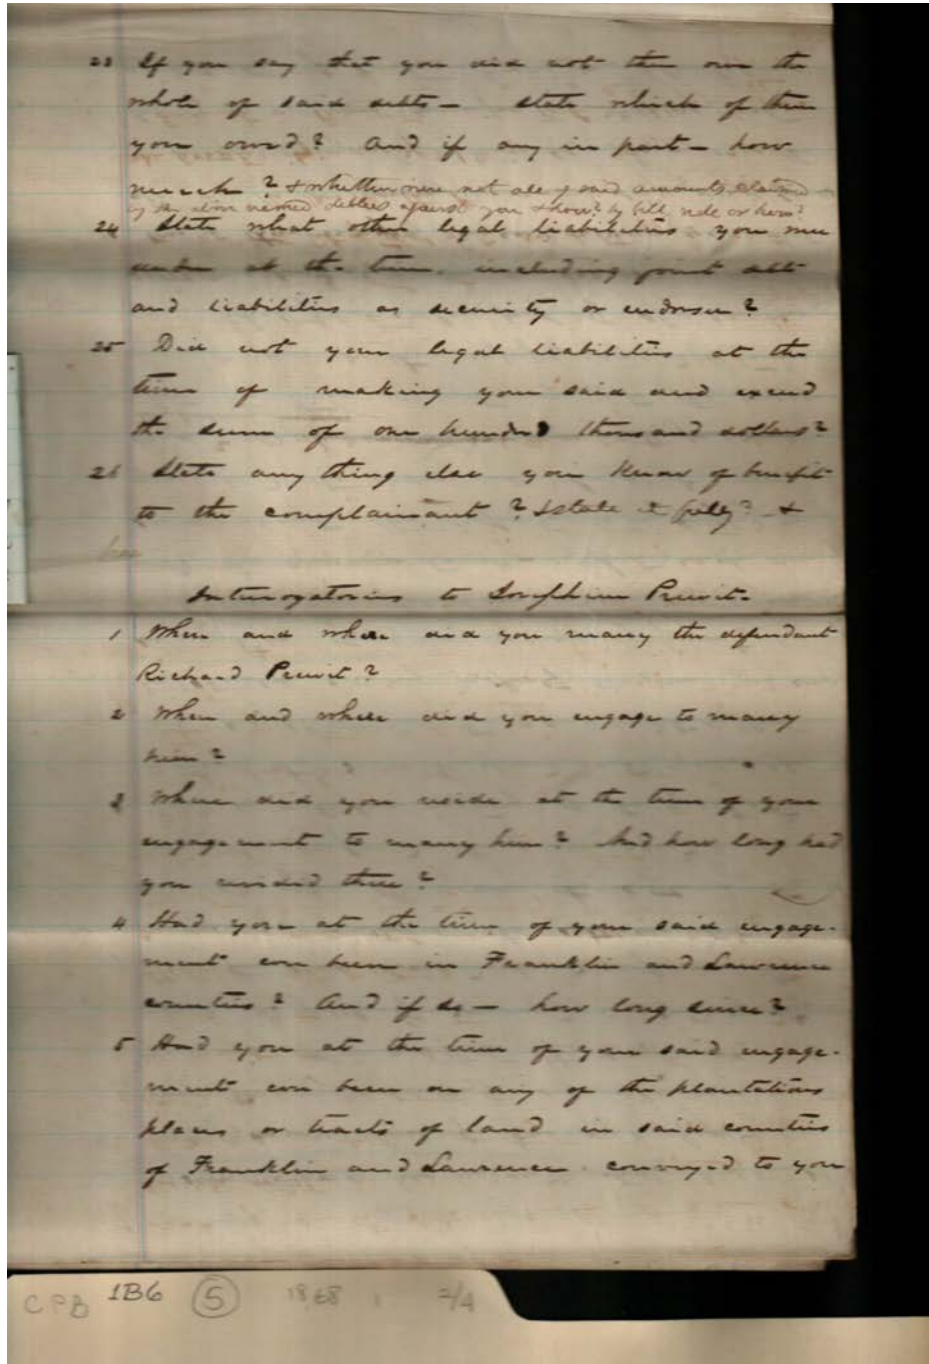 23 If you say that you did not then owe the
whole of said debts – state which of them
you owed? And if any in part – how
much? & whether were not all of said amounts claimed
by the above named debtees against you & how? by bill, note or how?
24 State what other legal liabilities you were
under at the time, including joint debts
and liabilities as security or endorser?
25 Did not your legal liabilities at the
time of making your said deed exceed
the sum of one hundred thousand dollars?
26 State any thing else you know of benefit
to the complainant? & state it fully? &
how
Interrogatories to Josephine Pruit.
1 When and where did you marry the defendant
Richard Pruit?
2 When and where did you engage to marry
him?
3 Where did you reside at the time of your
engagement to marry him? And how long had
you resided there?
4 Had you at the time of your said engage-
ment ever been in Franklin and Lawrence
counties? And if so – how long since?
5 Had you at the time of your said engage-
ment ever been on any of the plantations
places or tracts of land in said counties
of Franklin and Lawrence conveyed to you
CPB 1B6 5 1868 2/4